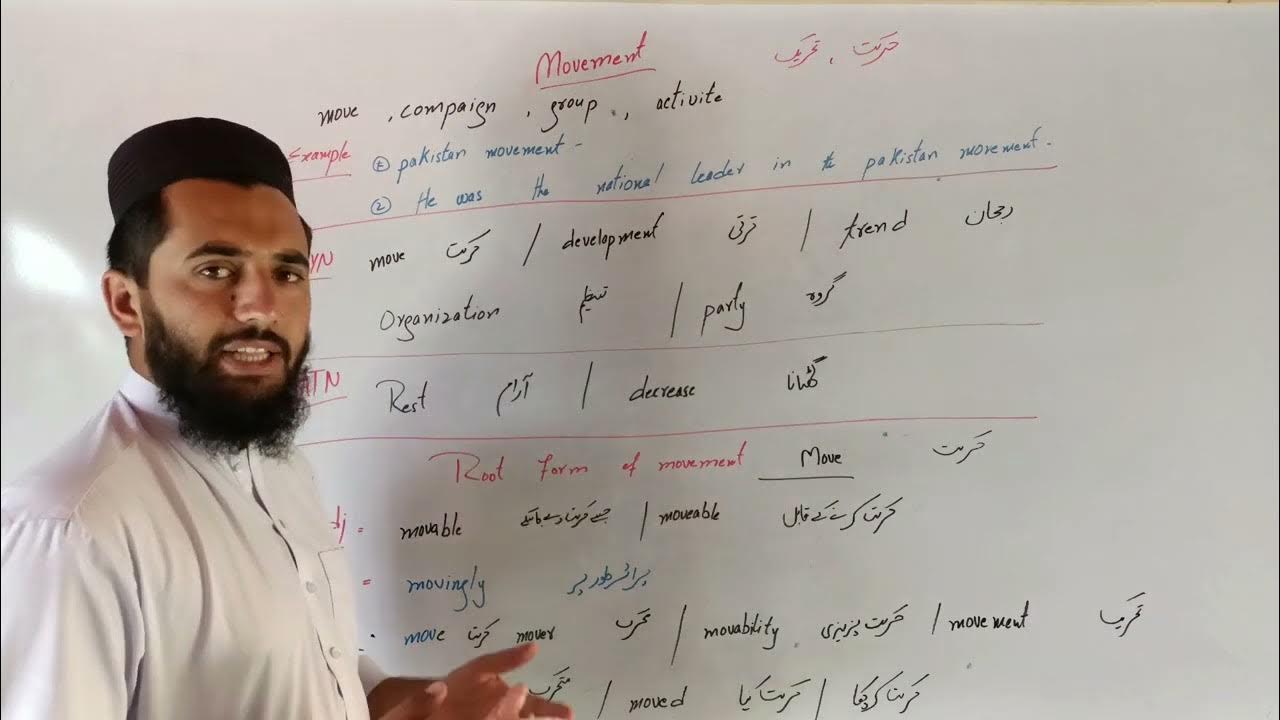 Movement حرکت ، تحریک
move , compaign , group , activite
Example ① pakistan movement -
② He was the national leader in the pakistan movement.
YN move حرکت / development ترقی / trend رجحان
Organization تنظیم / party گروہ
ATN Rest آرام / decrease گھٹانا
Root form of movement Move حرکت
dj = movable / moveable حرکت کرنے کے قابل
= movingly پر اثر طور پر
: move حرکت mover محرک / movability حرکت پزیری / movement تحریک
متحرک / moved حرکت کیا /